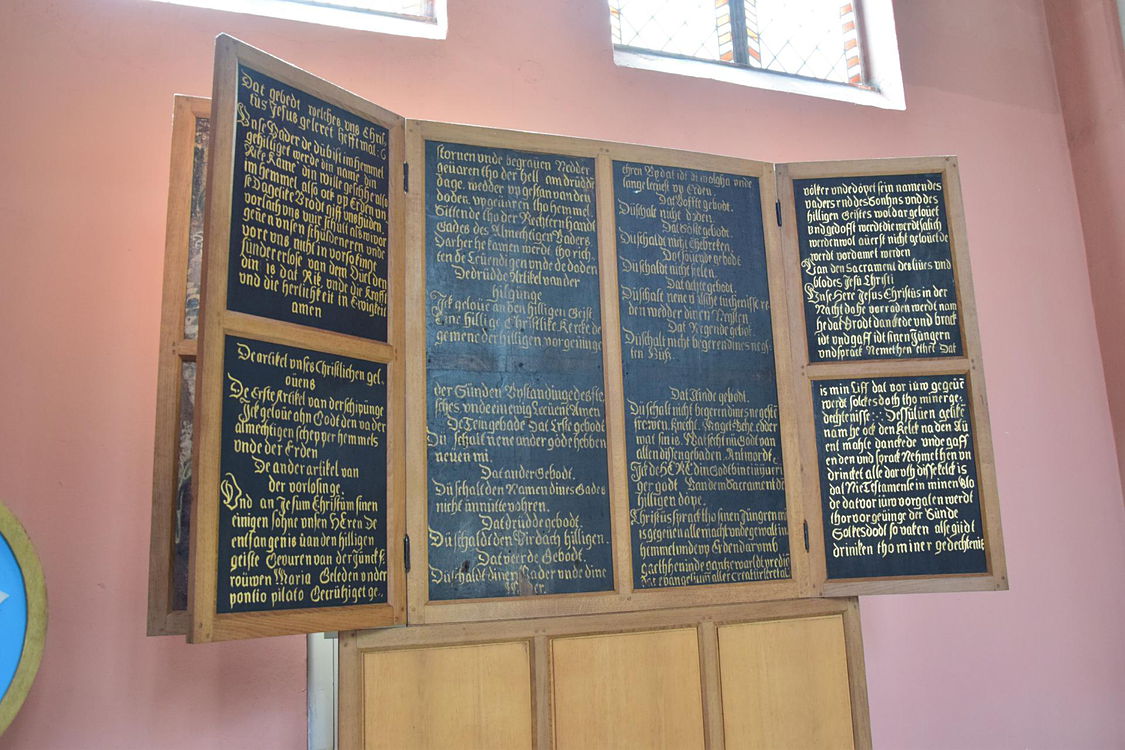 Dat gebedt welches vns Chris,
tus Jesus geleret hefft mat: 6
Vnse Vader de dü bist im hemmel
gehilliget werde din name din
Rike kame din wille geschehe also
im hemmel also ock vp Erden vn
se Dagelike Brodt giff vns hüden
vorlath vns vnse schült als wy vor
geuen vnsen schüldeneren vnde
vore vns nicht in vorsökinge
sünder erlöse van dem Öuel den
din is dat Rik vnde die Krafft
vnd die herlichkeit in Ewigkeit
amen
De artikel vnses Christlichen gel,
ouens
De Erste Artikel van der schipünge
Ick gelöue ahn Godt den vader
almechtigen schepper hemmels
vnde der Erden
De ander artikel van
der vorlösinge
Vnd an Jesum Christüm sinen
einigen sohne vnsen HEren De
entfangen is van den hilligen
geiste Gevuren van der Junck f,
rouwen Maria Geleden vnder
pontio pilato Gecrütziget ge,
storuen vnde begrauen Nedder
geuaren tho der hell am drüdde
dage wedder vp gestan van den
doden vpgeuaren tho hemmel
Sittende tho der Rechtern handt
Gades des Almechtigen Vaders
Dar her he kamen werdt tho rich,
ten de Leuendigen vnde de doden
De drüdde Artikel van der
hilgünge
Ick gelöue an den hilligen Geist
Eine hillige Christlike Kercke de
gemene der hilligen vorgeuinge
der Sünden Vpstandinge des fle,
sches vnde ein ewig Leeuent Amen
De Tein gebade Dat Erste gebodt
Dü schalt nene ander göde hebben
neuen mi
Dat ander Gebodt
Dü schalt den Namen dines Gades
nicht ünnütte vohren
Dat drüdde gebodt
Dü schalt den Virdach hilligen
Dat veerde Gebodt
Dü schalt dinen vader vnde dine
ehren Vp dat idt di wolgha vn
lange leuest vp Erden
Dat Vöffte gebodt
Dü schalt nicht doden
Dat Söste gebodt
Dü schalt nicht Ehebreken
Dat söuende gebodt
Dü schalt nicht stelen
Dat achte gebodt
Dü schalt nene valsche tüchenisse re
den wedder dinen Negsten
Dat Negende gebot
Dü schalt nicht begeren dines negs,
ten Huß
Dat Teinde gebodt
Dü schalt nicht begeren dines negsten
frewen knecht Maget Vehe edder
wat sin is Wat secht nü Godt van
allen dissen gebaden Antworde
Ick de HERE din Godt bin ein iuer
ger godt Van dem Sacrament der
hilligen dope
Christus sprack tho sinen Jüngren mi
is gegeuen alle macht vnde gewalt in
hemmel vnde vp Erden darumb
gaeth hen in de gantze warldt predig
dat evangelium aller creatur leret al
völker vnde döpet se in namen des
vaders vnd des Sohns vnd des
hilligen Geistes wol dar gelöuet
vnd gedofft werdt de werdt salich
werden wol auerst nicht gelöuet de
werdt vordamet werden
Van den Sacrament des liues vnd
blodes Jesu Christi
Vnse Here Jesus Christüs in der
Nacht do he vorraden werdt nam
he dat Brodt danckede vnd brack
idt vnd gaff idt sinen Jüngern
vnd sprack Nemet hen ethet Dat
is min Liff dat vor iüw gegeüen
werdt solckes doth tho miner ge,
dechtenisse Dessüluen geliken
nam he ock den Kelck na den Au
ent mahle danckede vnde gaff
en den vnd sprak Nehmet hen vn
drincket alle dar vth disse kelck is
dat Nie Testamente in minen blo
de dat vor iüw vorgaten werdt
thor vorgeuinge der Sünde
Solkes dodt so vaken alse gi idt
drinken tho miner gedechtenis